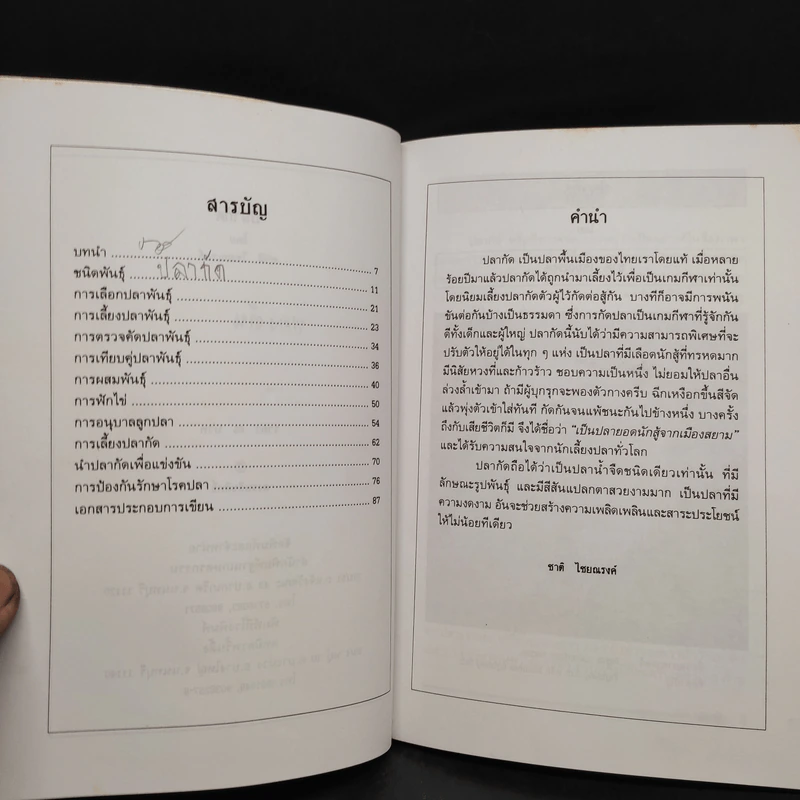 สารบัญ
บทนำ 7
ชนิดพันธุ์ ปลากัด 11
การเลือกปลาพันธุ์ 21
การเลี้ยงปลาพันธุ์ 23
การตรวจคัดปลาพันธุ์ 34
การเทียบคู่ปลาพันธุ์ 36
การผสมพันธุ์ 40
การฟักไข่ 50
การอนุบาลลูกปลา 54
การเลี้ยงปลากัด 62
นำปลากัดเพื่อแข่งขัน 70
การป้องกันรักษาโรคปลา 76
เอกสารประกอบการเขียน 87
คำนำ
ปลากัด เป็นปลาพื้นเมืองของไทยเราโดยแท้ เมื่อหลาย
ร้อยปีมาแล้วปลากัดได้ถูกนำมาเลี้ยงไว้เพื่อเป็นเกมกีฬาเท่านั้น
โดยนิยมเลี้ยงปลากัดตัวผู้ไว้กัดต่อสู้กัน บางทีก็อาจมีการพนัน
ขันต่อกันบ้างเป็นธรรมดา ซึ่งการกัดปลาเป็นเกมกีฬาที่รู้จักกัน
ดีทั้งเด็กและผู้ใหญ่ ปลากัดนี้นับได้ว่ามีความสามารถพิเศษที่จะ
ปรับตัวให้อยู่ได้ในทุก ๆ แห่ง เป็นปลาที่มีเลือดนักสู้ที่ทรหดมาก
มีนิสัยหวงที่และก้าวร้าว ชอบความเป็นหนึ่ง ไม่ยอมให้ปลาอื่น
ล่วงล้ำเข้ามา ถ้ามีผู้บุกรุกจะพองตัวกางครีบ ฉีกเหงือกขึ้นสีจัด
แล้วพุ่งตัวเข้าใส่ทันที กัดกันจนแพ้ชนะกันไปข้างหนึ่ง บางครั้ง
ถึงกับเสียชีวิตก็มี จึงได้ชื่อว่า "เป็นปลายอดนักสู้จากเมืองสยาม"
และได้รับความสนใจจากนักเลี้ยงปลาทั่วโลก
ปลากัดถือได้ว่าเป็นปลาน้ำจืดชนิดเดียวเท่านั้น ที่มี
ลักษณะรูปพันธุ์ และมีสีสันแปลกตาสวยงามมาก เป็นปลาที่มี
ความงดงาม อันจะช่วยสร้างความเพลิดเพลินและสาระประโยชน์
ให้ไม่น้อยทีเดียว
ชาติ ไชยณรงค์